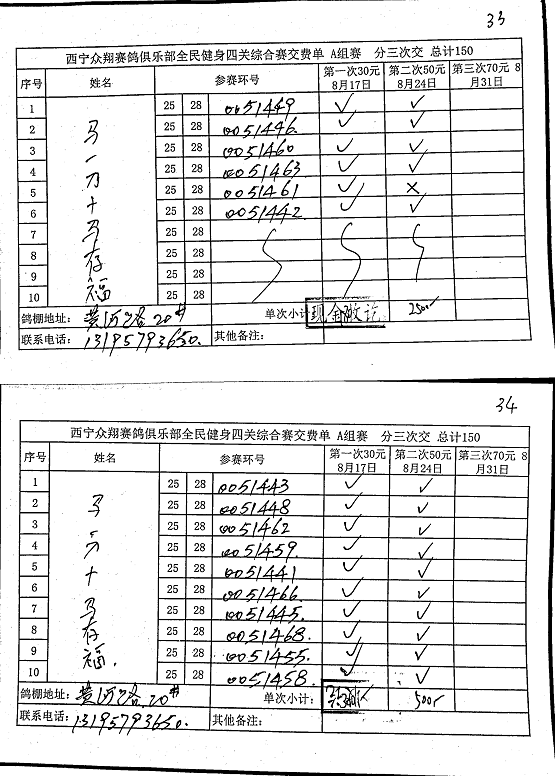 33
西宁众翔赛鸽俱乐部全民健身四关综合赛交费单 A组赛 分三次交 总计150
序号 姓名 参赛环号 第一次30元 8月17日 第二次50元 8月24日 第三次70元 8月31日
1 25 28 0051449 ✓ ✓
2 25 28 0051446 ✓ ✓
3 25 28 0051460 ✓ ✓
4 25 28 0051463 ✓ ✓
5 25 28 0051461 ✓ ×
6 25 28 0051442 ✓ ✓
7 25 28
8 25 28
9 25 28
10 25 28
马一力十马存福
鸽棚地址: 黄河路20# 单次小计: 现金收讫 250
联系电话: 13195793650. 其他备注:
34
西宁众翔赛鸽俱乐部全民健身四关综合赛交费单 A组赛 分三次交 总计150
序号 姓名 参赛环号 第一次30元 8月17日 第二次50元 8月24日 第三次70元 8月31日
1 25 28 0051443 ✓ ✓
2 25 28 0051448 ✓ ✓
3 25 28 0051462 ✓ ✓
4 25 28 0051459. ✓ ✓
5 25 28 0051441 ✓ ✓
6 25 28 0051466. ✓ ✓
7 25 28 0051445. ✓ ✓
8 25 28 0051468. ✓ ✓
9 25 28 0051455. ✓ ✓
10 25 28 0051458. ✓ ✓
马力十马存福.
鸽棚地址: 黄河路20# 单次小计: 500
联系电话: 13195793650. 其他备注: